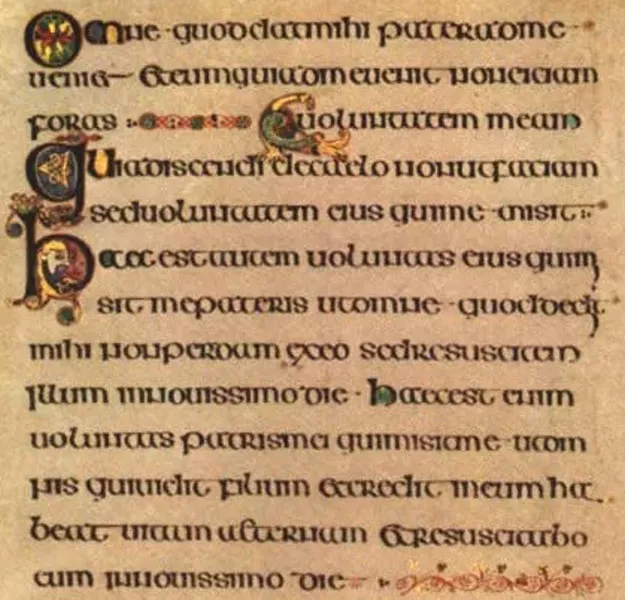 Omne quod dat mihi pater ad me
ueniet & eum qui uenit ad me non eiciam
foras uoluntatem meam
Quia discendi de caelo non ut faciam
sed uoluntatem eius qui me misit
Haec est autem uoluntas eius qui mi
sit me pateris ut omne quod dedit
mihi non perdam ex eo sed resuscitem
illum in nouissimo die · haec est enim
uoluntas patris mei qui misit me ut om
nis qui uidit filium & credit in eum ha
beat uitam aeternam & resuscitabo
eum in nouissimo die